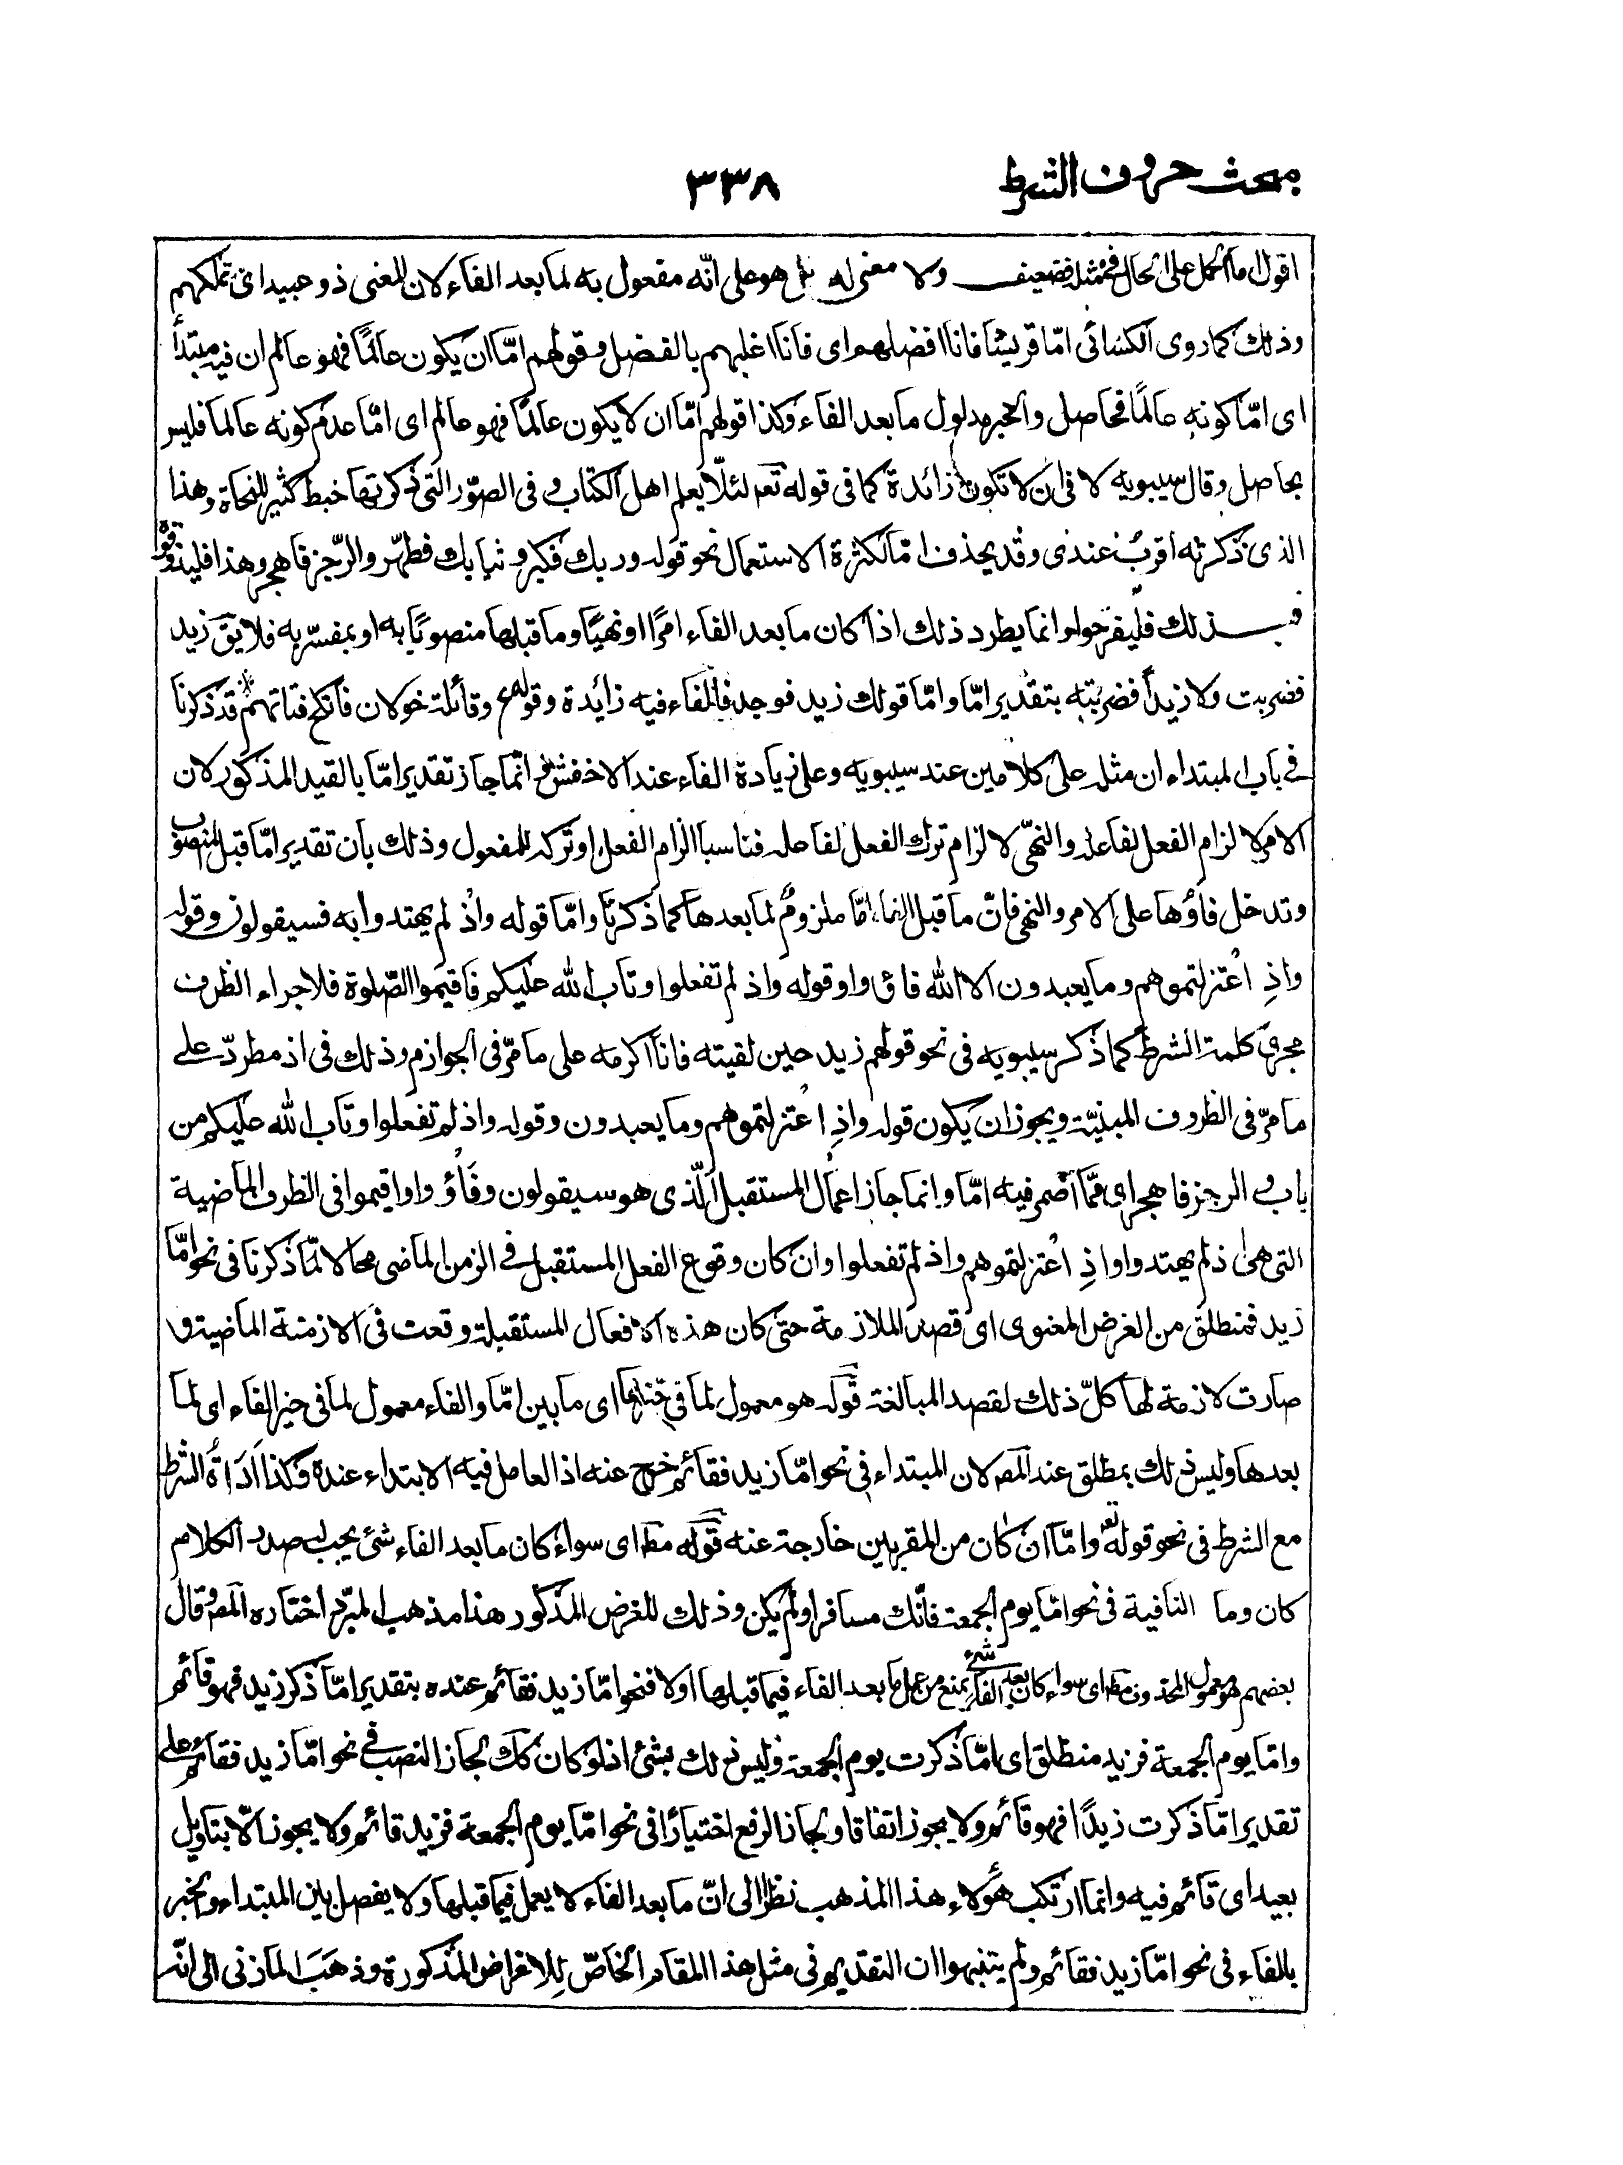 مبحث حروف الشرط
٣٣٨
اقول اما الحمل على الحال فمثله فضعيف ولا معنى له بل هو على انّه مفعول به لما بعد الفاء لان المعنى ذو عبيد اى تملكهم
وذلك كما روى الكسائى امّا قريشا فانا افضلهم اى فانا اغلبهم بالفضل وقولهم امّا ان يكون عالمًا فهو عالم ان فيه مبتدأ
اى امّا كونه عالمًا فحاصل والخبر مدلول ما بعد الفاء وكذا قولهم امّا ان لا يكون عالمًا فهو عالم اى امّا عدم كونه عالما فليس
بحاصل وقال سيبويه لا فى ان لا تكون زائدة كما فى قوله تعه لئلّا يعلم اهل الكتاب و فى الصوّر التى ذكرتها خبط كثير للنحاة وهذا
الذى ذكرته اقرب عندى وقد يحذف امّا لكثرة الاستعمال نحو قوله وربك فكبر و ثيابك فطهّر والرّجز فاهجر وهذا فليذوقوه
فبذلك فليفرحوا وانما يطرد ذلك اذا كان ما بعد الفاء امرًا او نهيًا وما قبلها منصوبًا به او بمفسّر به فلا يق زيد
فضربت ولا زيدًا فضربته بتقدير امّا وامّا قولك زيد فوجد فالفاء فيه زائدة وقوله ع وقائلة خولان فانكح فتاتهم قد ذكرنا
فى باب المبتداء ان مثله على كلامين عند سيبويه وعلى زيادة الفاء عند الاخفش و انّما جاز تقدير امّا بالقيد المذكور لان
الامر لا لزام الفعل لفاعله والنهى لا لزام ترك الفعل لفاعله فناسبا الزام الفعل او تركه للمفعول وذلك بان تقدير امّا قبل المنصوب
وتدخل فاؤها على الامر والنهى فانّ ما قبل الفاء امّا ملزوم لما بعدها كما ذكرنا وامّا قوله واذ لم يهتدوا به فسيقولون وقوله
واذِ اعتزلتموهم وما يعبدون الا الله فاووا وقوله واذ لم تفعلوا وتاب الله عليكم فاقيموا الصّلوة فلاجراء الظرف
مجرى كلمة الشرط كما ذكر سيبويه فى نحو قولهم زيد حين لقيته فانا اكرمه على ما مرّ فى الجوازم وذلك فى اذ مطردّ على
ما مرّ فى الظروف المبنيّة ويجوز ان يكون قوله واذِ اعتزلتموهم وما يعبدون وقوله واذ لم تفعلوا وتاب الله عليكم من
باب والرجز فاهجر اى ممّا اضمر فيه امّا وانما جاز اعمال المستقبل الّذى هو سيقولون وفاؤوا واقيموا فى الظرف الماضية
التى هى اذ لم يهتدوا واذِ اعتزلتموهم واذ لم تفعلوا وان كان وقوع الفعل المستقبل فى الزمن الماضى محالا لمّا ذكرنا فى نحو امّا
زيد فمنطلق من الغرض المعنوى اى قصد الملازمة حتى كان هذه الافعال المستقبلة وقعت فى الازمنة الماضية و
صارت لازمة لها كلّ ذلك لقصد المبالغة قوله هو معمول لما فى حيّزها اى ما بين امّا والفاء معمول لما فى حيز الفاء اى لما
بعدها وليس ذلك بمطلق عند المصه لان المبتداء فى نحو امّا زيد فقائم خرج عنه اذ العامل فيه الابتداء عنده وكذا اداة الشرط
مع الشرط فى نحو قوله تعه وامّا ان كان من المقربين خارجة عنه قوله مطا اى سواء كان ما بعد الفاء شئ يجب له صدر الكلام
كان وما النافية فى نحو امّا يوم الجمعة فانّك مسافر او لم يكن وذلك للغرض المذكور هذا مذهب المبرّد اختاره المصه وقال
بعضهم هو معمول المحذوف مطا اى سواء كان بعد الفاء شئ يمنع من عمل ما بعد الفاء فيما قبلها اولا فنحو امّا زيد فقائم عنده بتقدير امّا ذكر زيد فهو قائم
وامّا يوم الجمعة فزيد منطلق اى امّا ذكرت يوم الجمعة وليس ذلك بشئ اذ لو كان كك لجاز النصب فى نحو امّا زيد فقائم على
تقدير امّا ذكرت زيدًا فهو قائم ولا يجوز اتفاقا ولجاز الرفع اختيارًا فى نحو امّا يوم الجمعة فزيد قائم ولا يجوز الّا بتاويل
بعيد اى قائم فيه وانما ارتكب هؤلاء هذا المذهب نظرًا الى انّ ما بعد الفاء لا يعمل فيما قبلها ولا يفصل بين المبتداء والخبر
بالفاء فى نحو امّا زيد فقائم ولم يتنبهوا ان التقديم فى مثل هذا المقام الخاصّ للاغراض المذكورة وذهب المازنى الى انّه